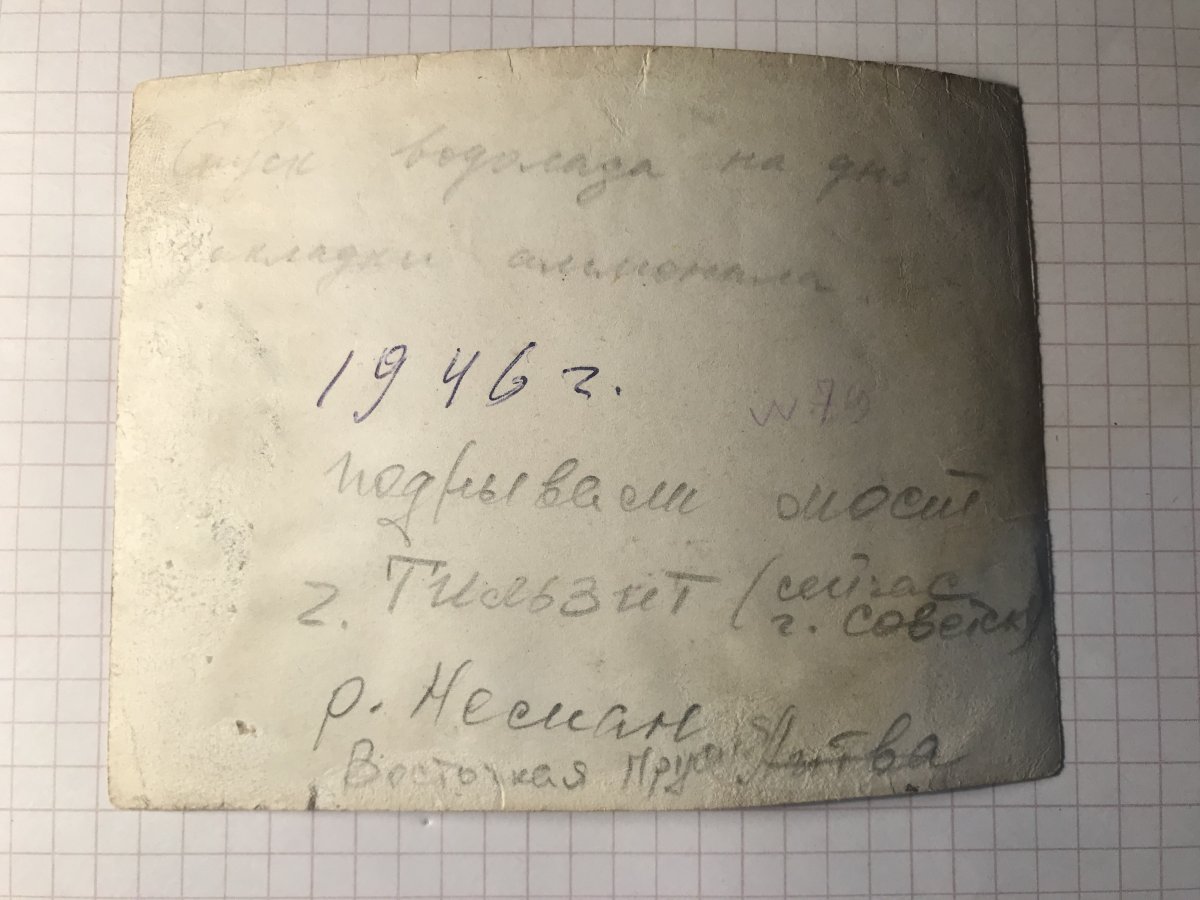 Спуск водолаза на дно
закладки аммонала
1946 г.
подрываем мост
г. Тильзит (сейчас
г. Советск)
р. Неман
Восточная Пруссия Литва